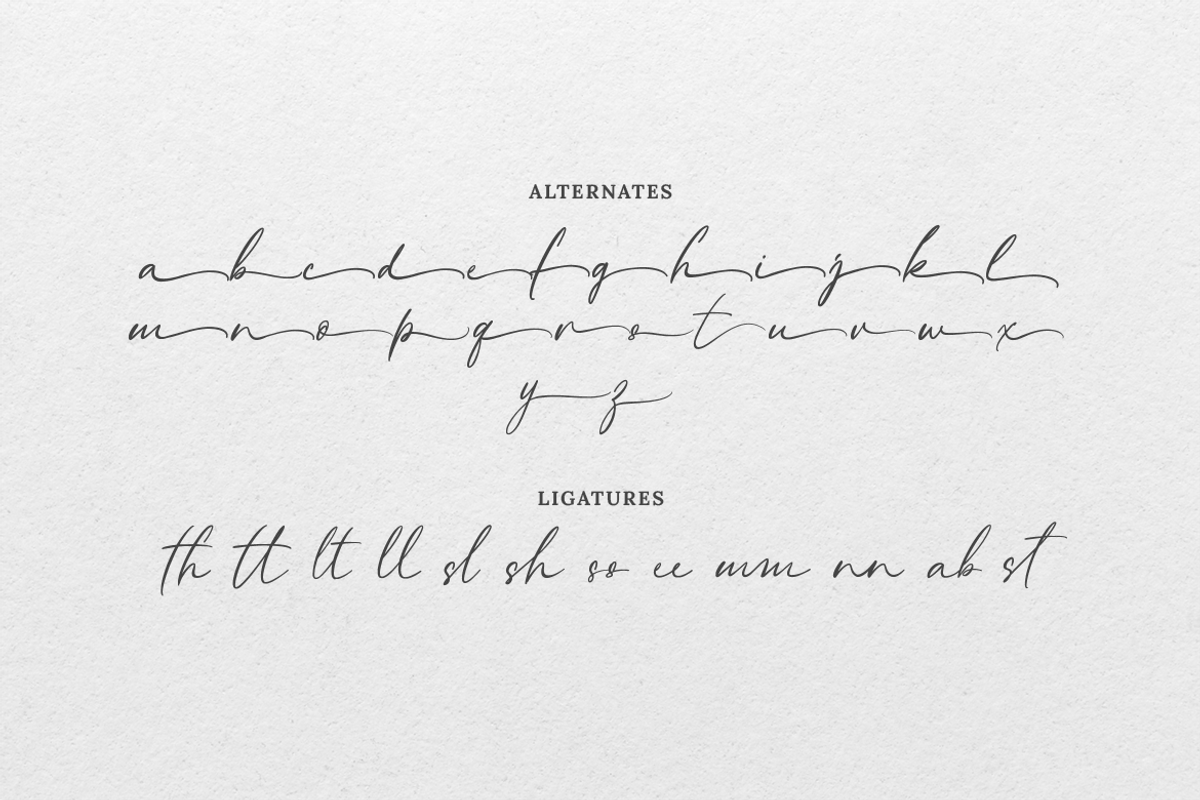 ALTERNATES
a b c d e f g h i j k l
m n o p q r s t u v w x
y z
LIGATURES
th tt lt ll sl sh ss ee mm nn ab st